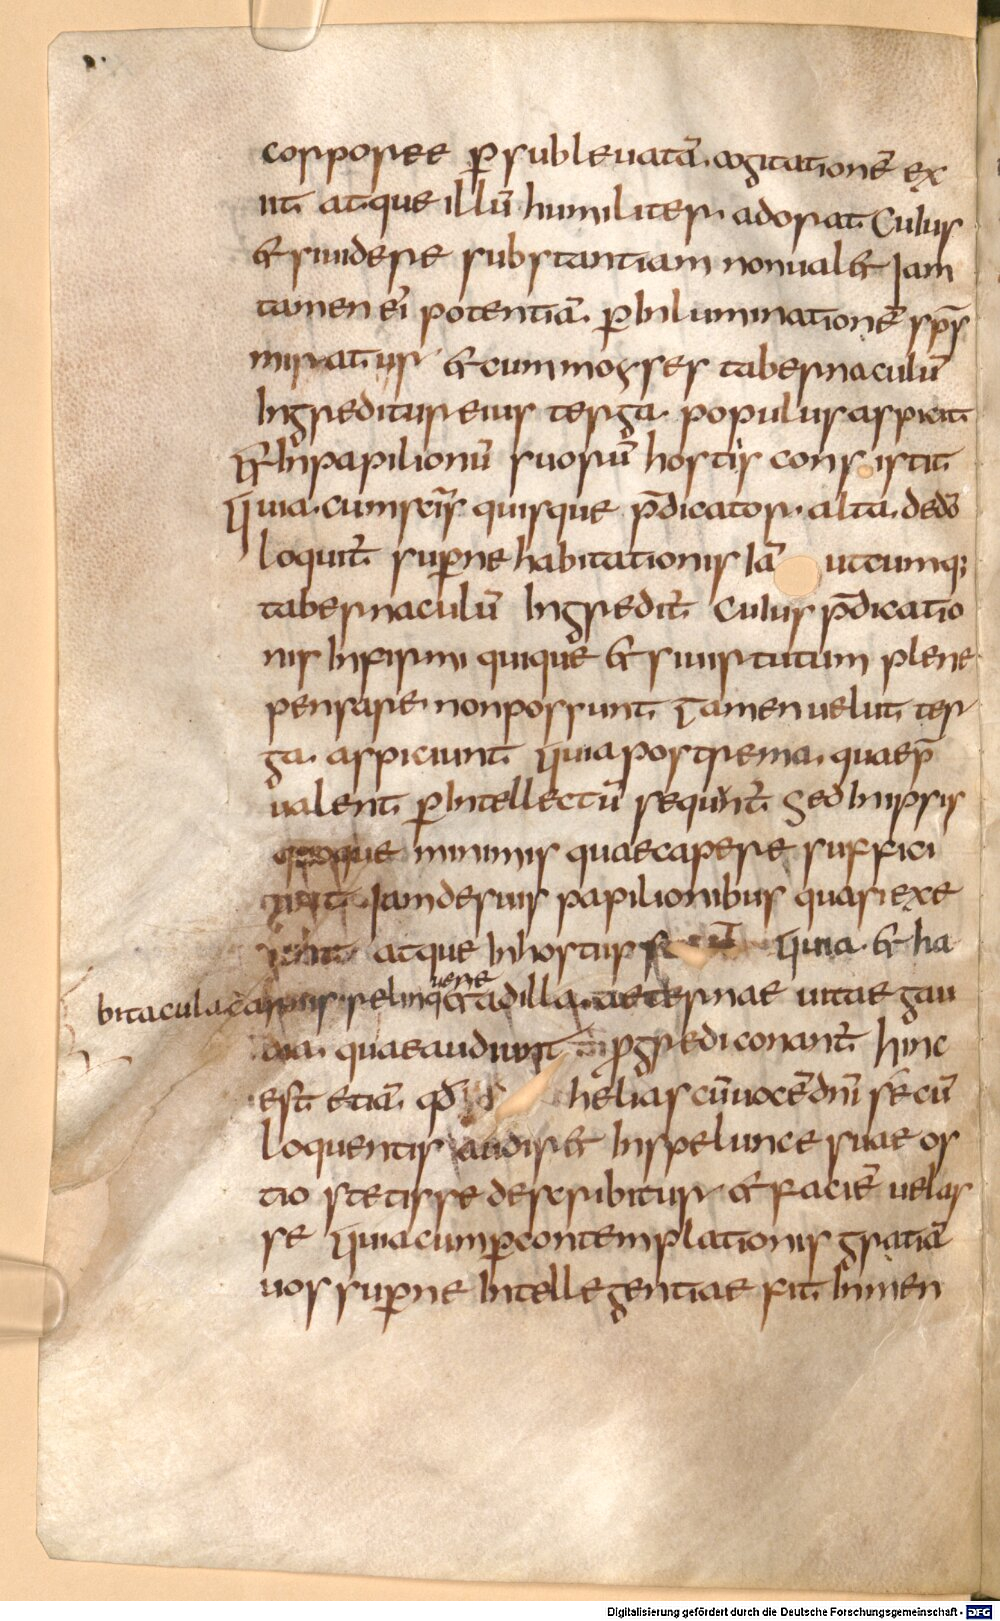 corpore p̄ subleuatā cogitationē ex
iit atque illū humiliter adorat Cuius
etsi uidere substantiam nonualet Iam
tamen ei potentiā p̄ Inluminationē sp̄s
miratur et cum moyses tabernaculū
Ingreditur eius terga populus aspicit
et In papilionū suorū hostiis consistit
Quia cum scīs quisque p̄dicator alta de dō
loquit̄ sup̄ne habitationis Iā utcumq;
tabernaculū Ingredit̄ Cuius p̄dicatio
nis Infirmi quique etsi uirtutum plene
pensare non possunt Tamen uelut ter
ga aspiciunt Quia postrema quae p̄
ualent p̄ Intellectū sequnt̄ Sed In ipsis
quoque minimis quae capere suffici
unt Iam de suis papilionibus quasi exe
unt atque In hostiu Quia et ha
bitacula carnis relinq
uere
et ad illa aeternae uitae gau
dia quae audiunt p̄gredi conant̄ hinc
est etiā qd̄ helias cū uocē dn̄i sēcū
loquentis audiret In spelunce suae os
tio stetisse describitur et faciē uelas
se Quia cum p̄ contemplationis gratiā
uox sup̄ne Intellegentiae fit In men
Digitalisierung gefördert durch die Deutsche Forschungsgemeinschaft - DFG